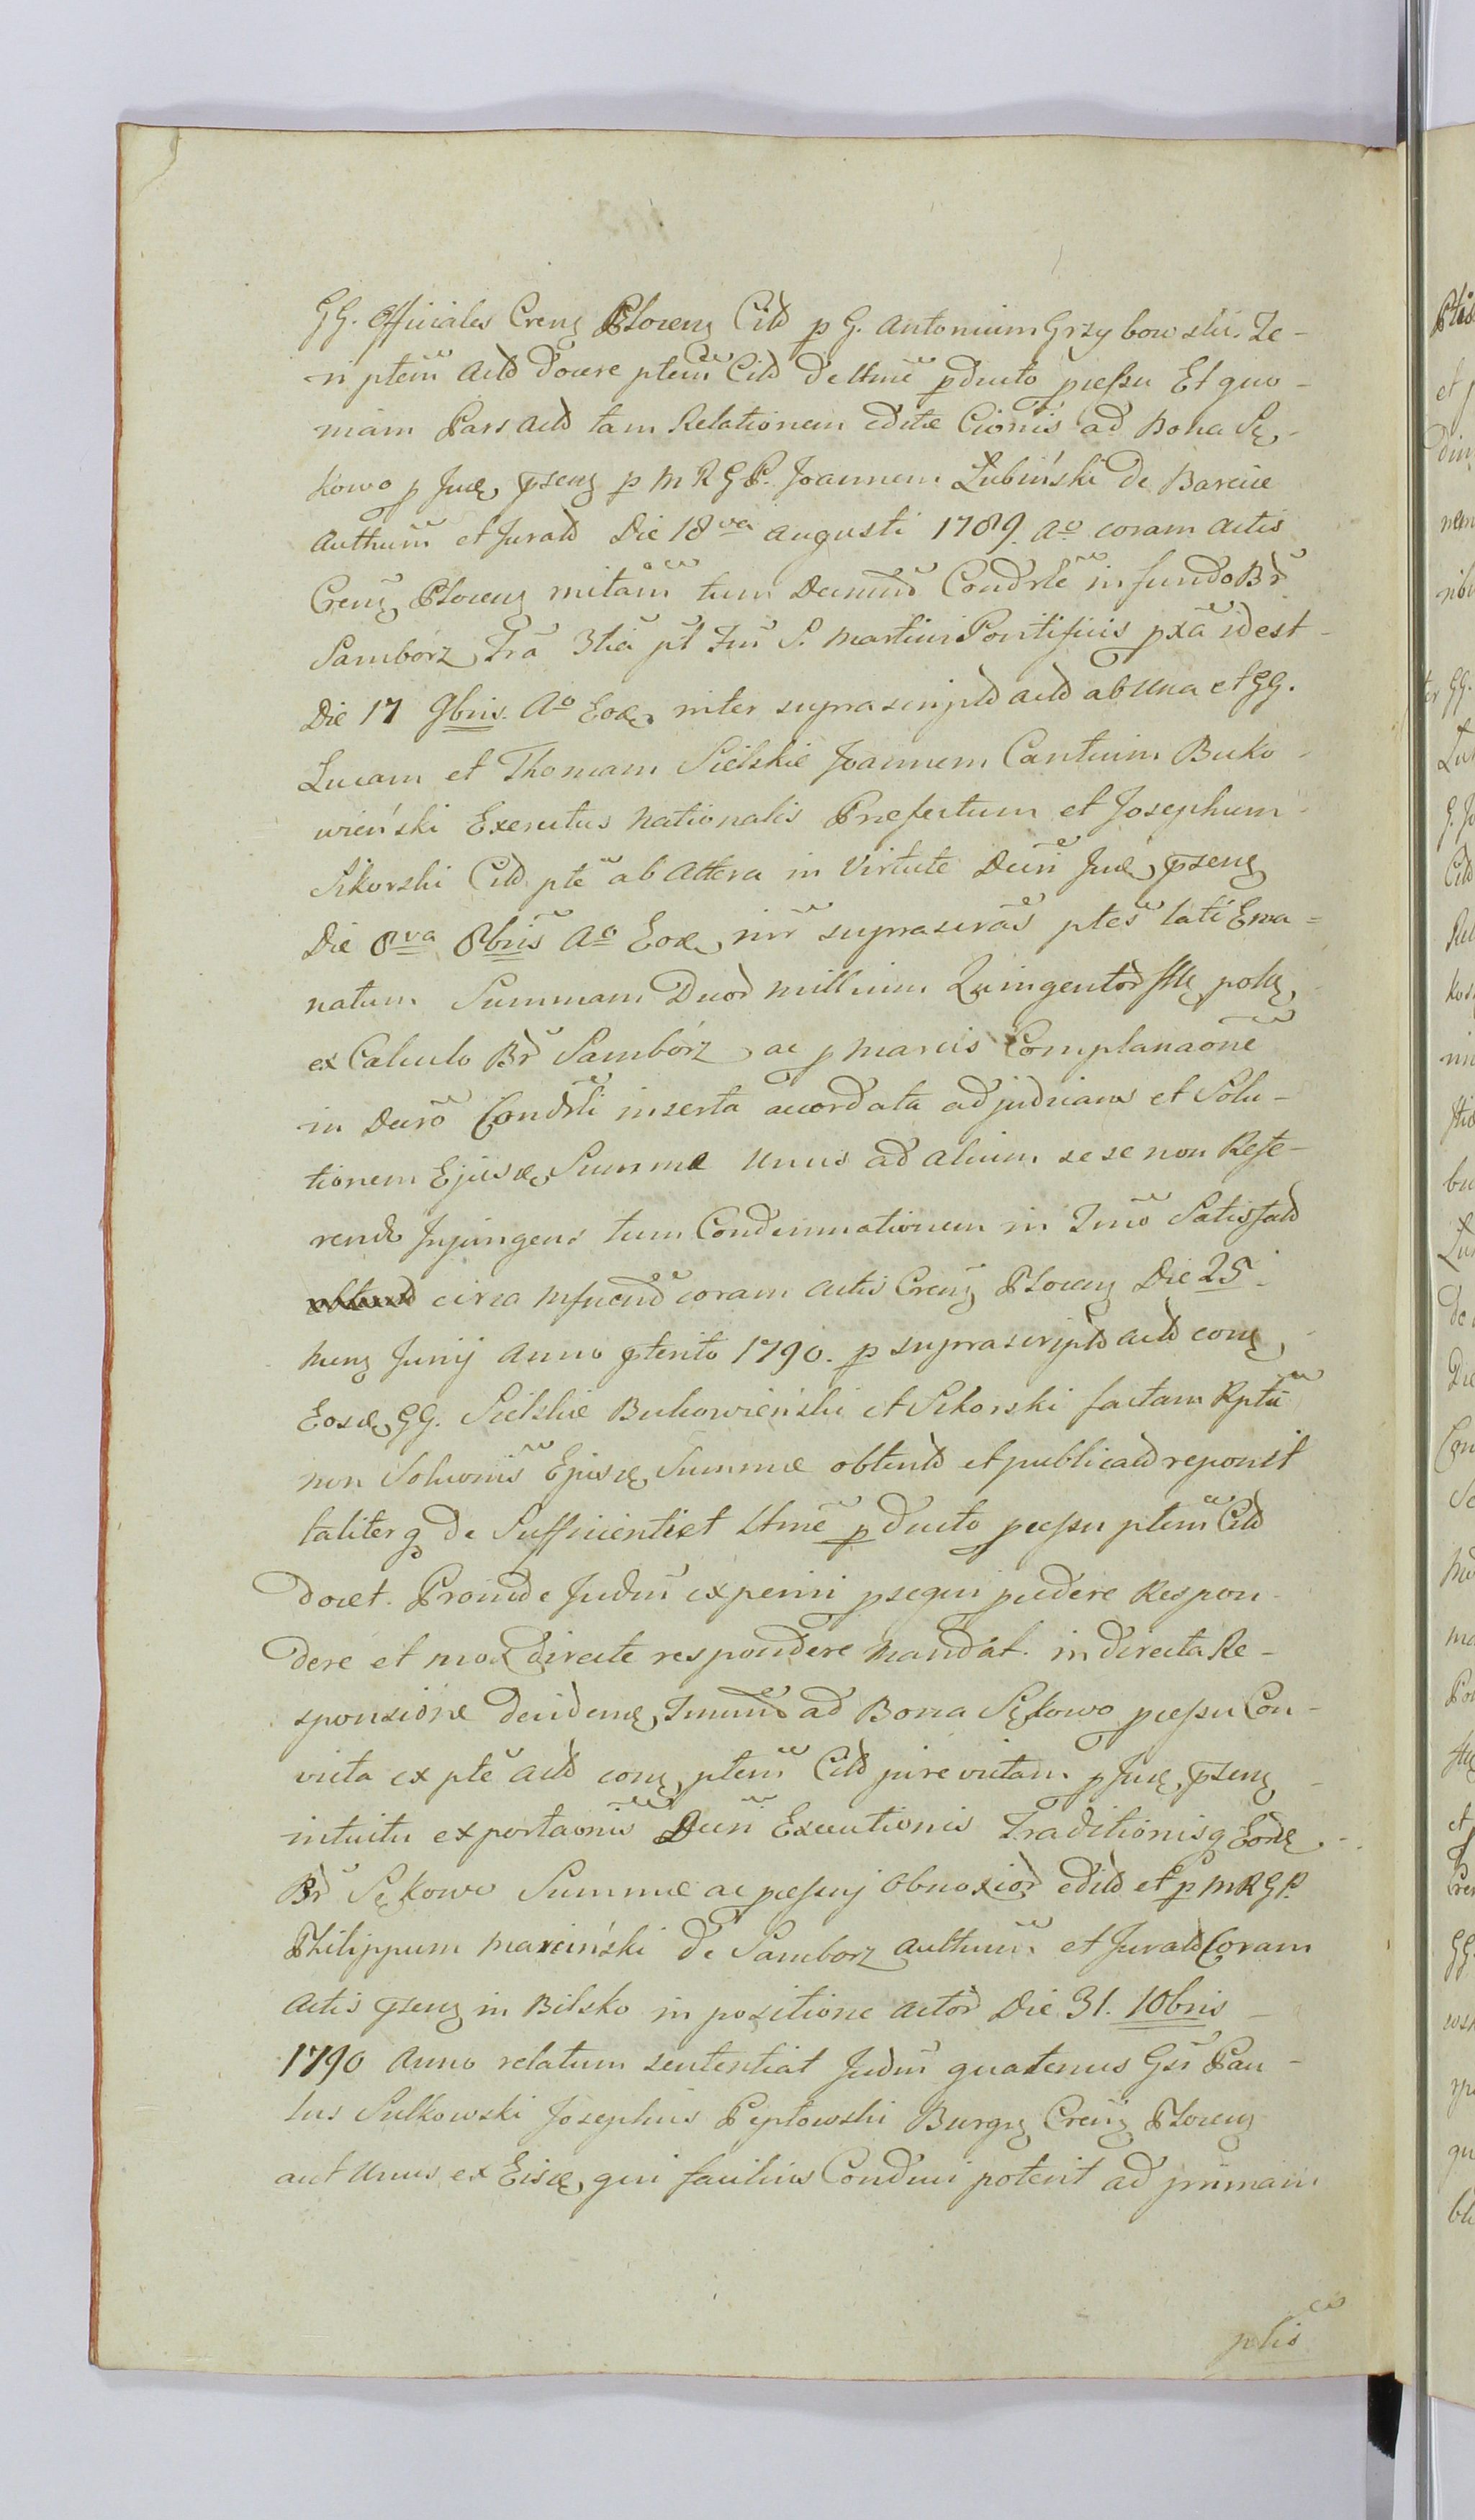 GG. Officiales Creng Ploceng Citd p G. Antonium Grzybowski. Te-
n ptem Actd docere ptem Citd de ltme pducto pcessu Et quo-
niam Pars Actd tam Relationem editæ Cionis ad Bona Sę-
kowo p Jud pseng p M R G P. Joannem Łubiński De Barcice
Authum et Juratd Die 18va Augusti 1789. Ao coram Actis
Creng Ploceng mitam tum Decmud Condrle in fundo Br
Samborz Fra 3tia pt Fm S. Martini Pontificis pxa idest
Die 17 9bris. Ao Eod, inter suprascriptd actd ab Una et GG.
Lucam et Thomam Sielskie Joannem Cantium Buko-
wieński Exercitus Nationalis Præfectum et Josephum
Sikorski Citd pte ab Altera in Virtute Decri Jud, pseng
Die 8va 8bris Ao Eod, inr suprascras ptes lati Ema=
natum Summam Duod millium Quingentod fll polł
ex Calculo Br Sambórz, ac p Marcis Complanaone
in Decro Condrli inserta accordata adjudicans et Solu-
tionem Ejusd, Summæ Unus ad alium se se non Refe-
rendo Injungens tum Condemnationem in Fmo Satisfactd
circa coram Actis Creng Ploceng Die 25
Meng Junij Anno pterito 1790. p suprascriptd actd cong
Eosd, GG. Sielskie Bukowieński et Sikorski factam Rptu
non Soluonis Ejusd, Summæ obtentd et publicatd reponit
taliterq de Sufficienti et ltme p ducto pcessu ptem Citd
docet. Proinde Judm experiri psequi pcedere Respon-
dere et mox directe respondere Mandat. in directa Re-
sponsione Decidend, Fmmd ad Bona Sękowo pcessu Con-
victa ex pte actd cong, ptem Citd jure victam p Jud, pseng
intuitu exportaonis Decri Executionis Traditionisq Eord,
Br Sękowo Summæ ac pcessuj Obnoxiod editd et p M R G P.
Philippum Marciński de Samborz Authum et Juratd Coram
Actis pseng in Bilsko in positione actod Die 31. 10bris
1790 Anno relatum sententiat Judm quatenus Gsi Pau-
lus Sulkowski Josephus Peptowski Burgg Creng Ploceng
aut Unus ex Eisd, qui facilius Conduci poterit ad primam
ptis